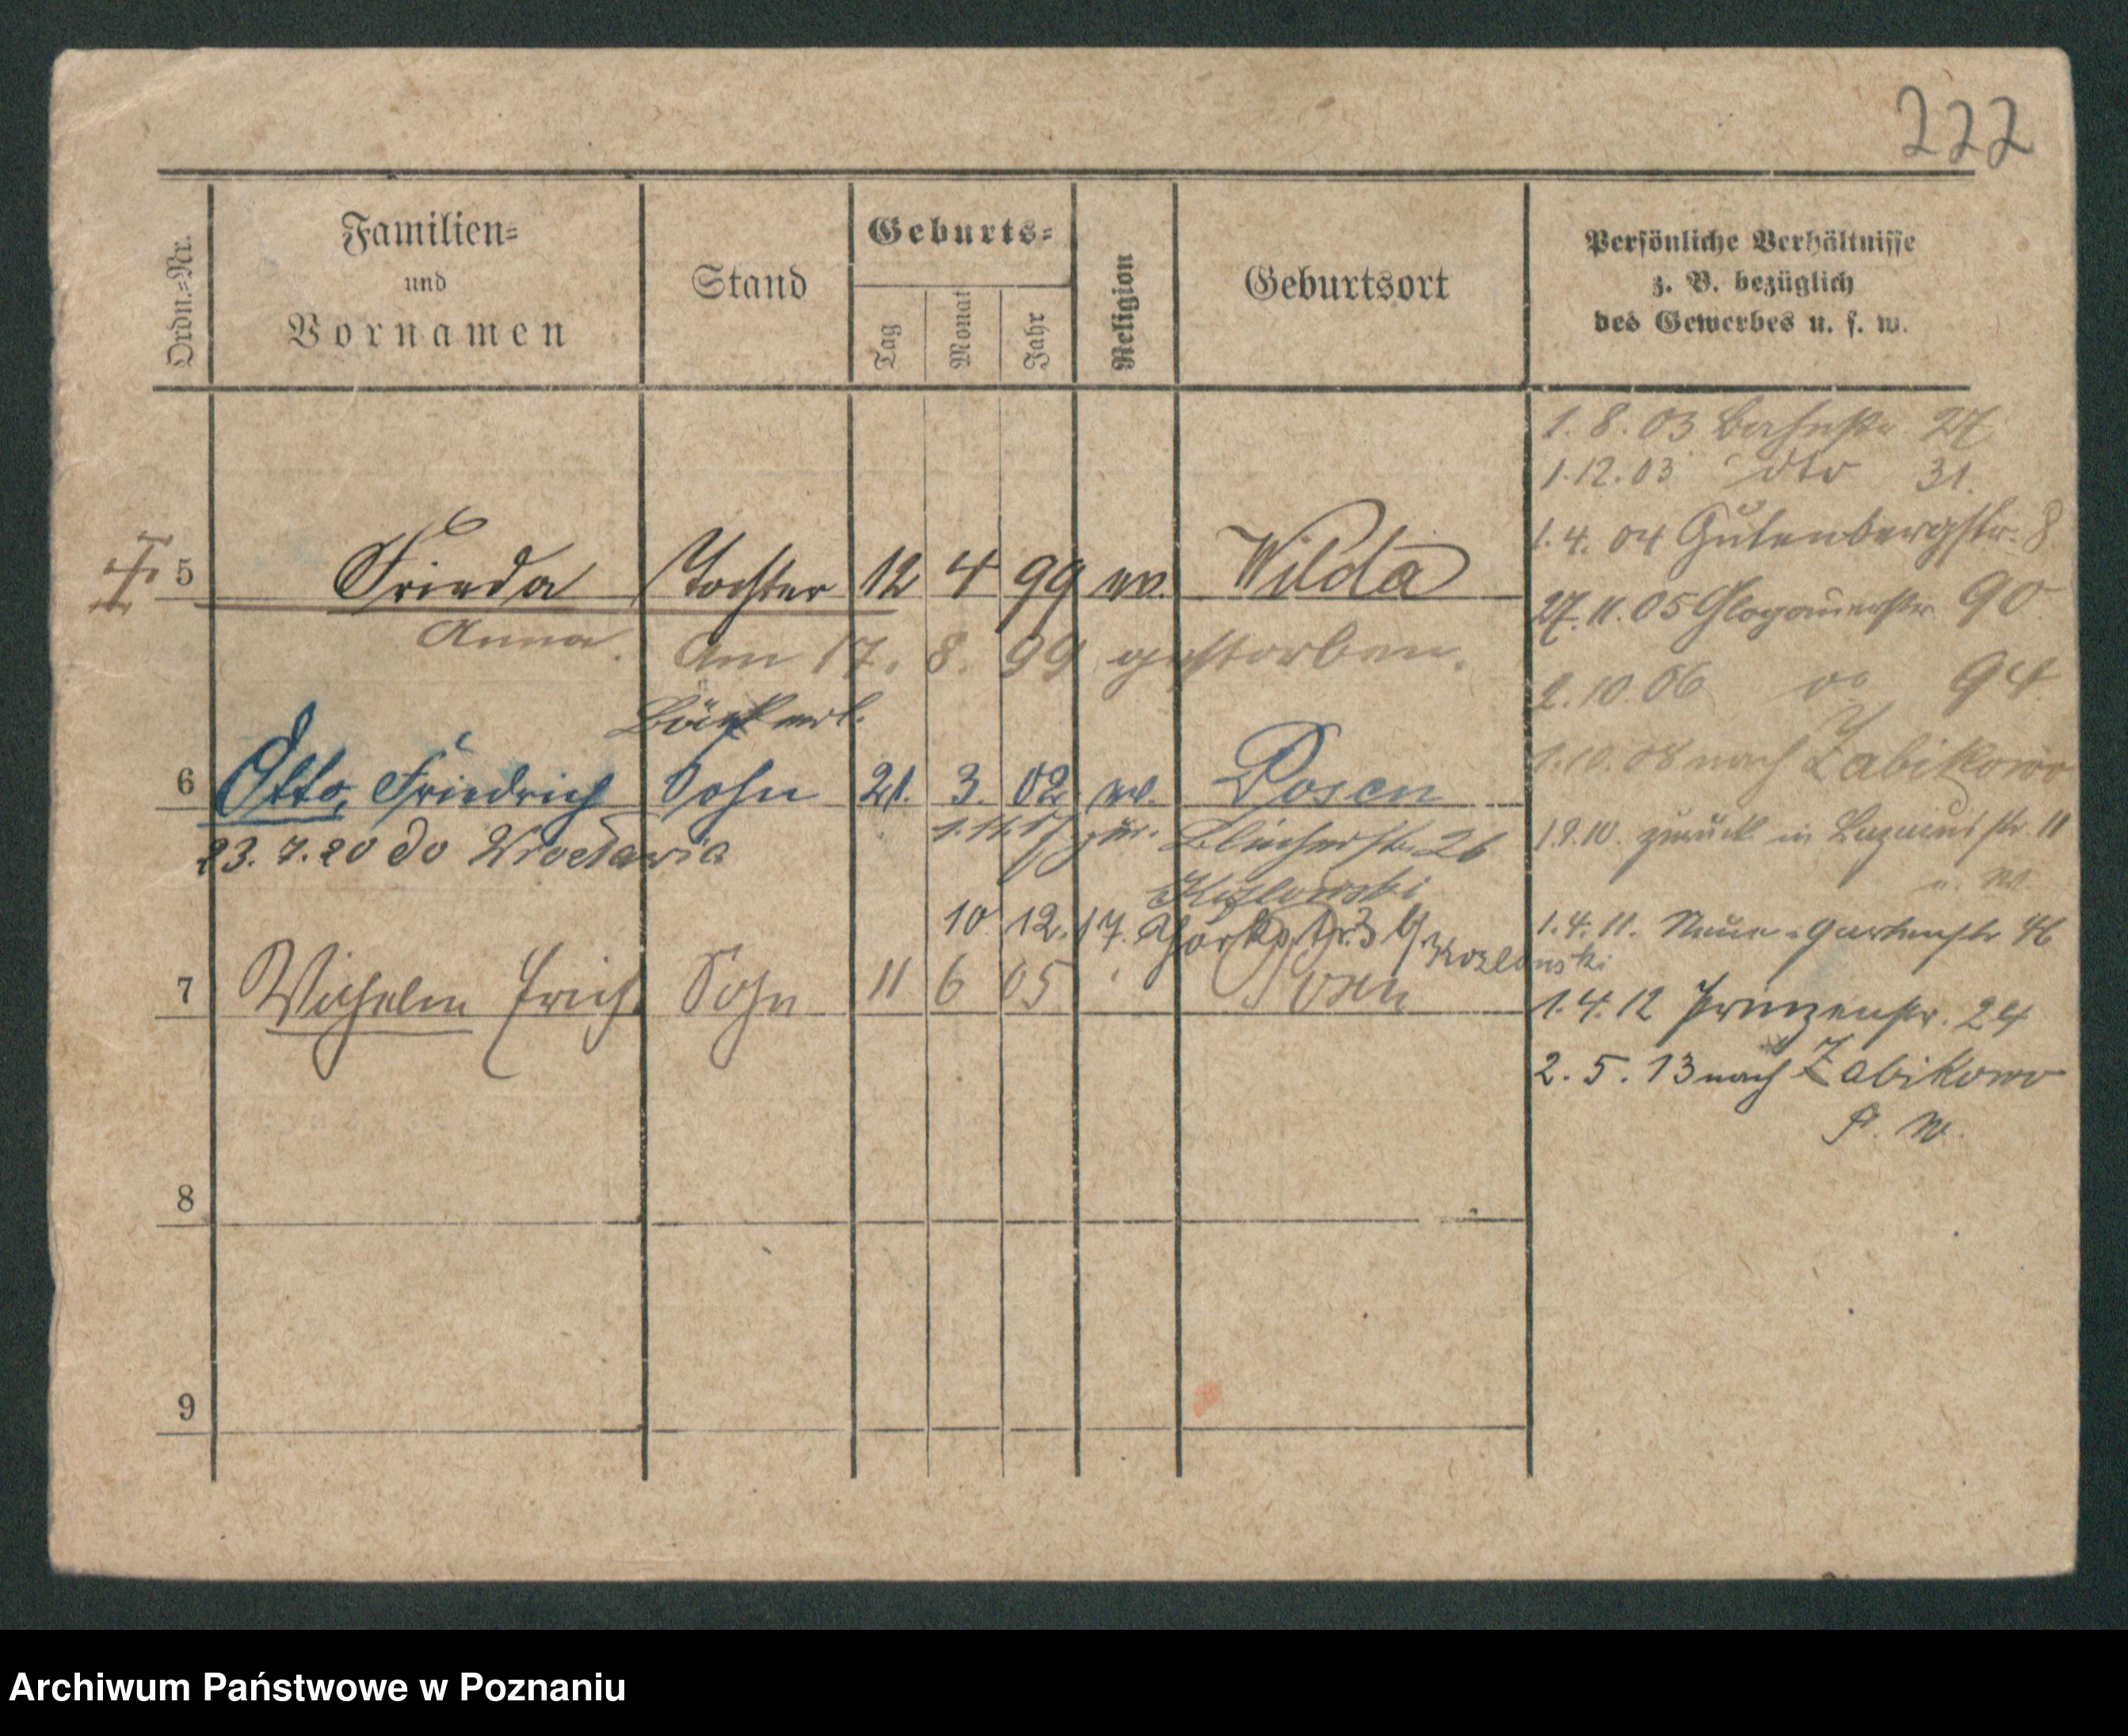 222
Ordn.=Nr.
Familien=
und
Vornamen
Stand
Geburts=
Tag
Monat
Jahr
Religion
Geburtsort
Persönliche Verhältnisse
z. B. bezüglich
des Gewerbes u. s. w.
5 Frieda Tochter 12 4 99 ev. Wilda
Anna. Am 17. 8. 99 gestorben.
Bäckerl.
6 Otto, Friedrich Sohn 21. 3. 02 ev. Posen
23.7.20 do Wrocławia
Blücherstr. 26
Kozlowski
10 12. 17. b/Kozlowski
7 Wilhelm Erich Sohn 11 6 05 Posen
8
9
1.8.03 Bahnstr 27
1.12.03 dto 31.
1.4.04 Gutenbergstr. 8.
27.11.05 Glogauerstr. 90
2.10.06 do 94.
1.10.08 nach Zabikowo
1.9.10. zurück in Lazarusstr. 11
1.4.11. Neue-Gartenstr 46
1.4.12 Prinzenstr. 24
2.5.13 nach Zabikowo
Archiwum Państwowe w Poznaniu